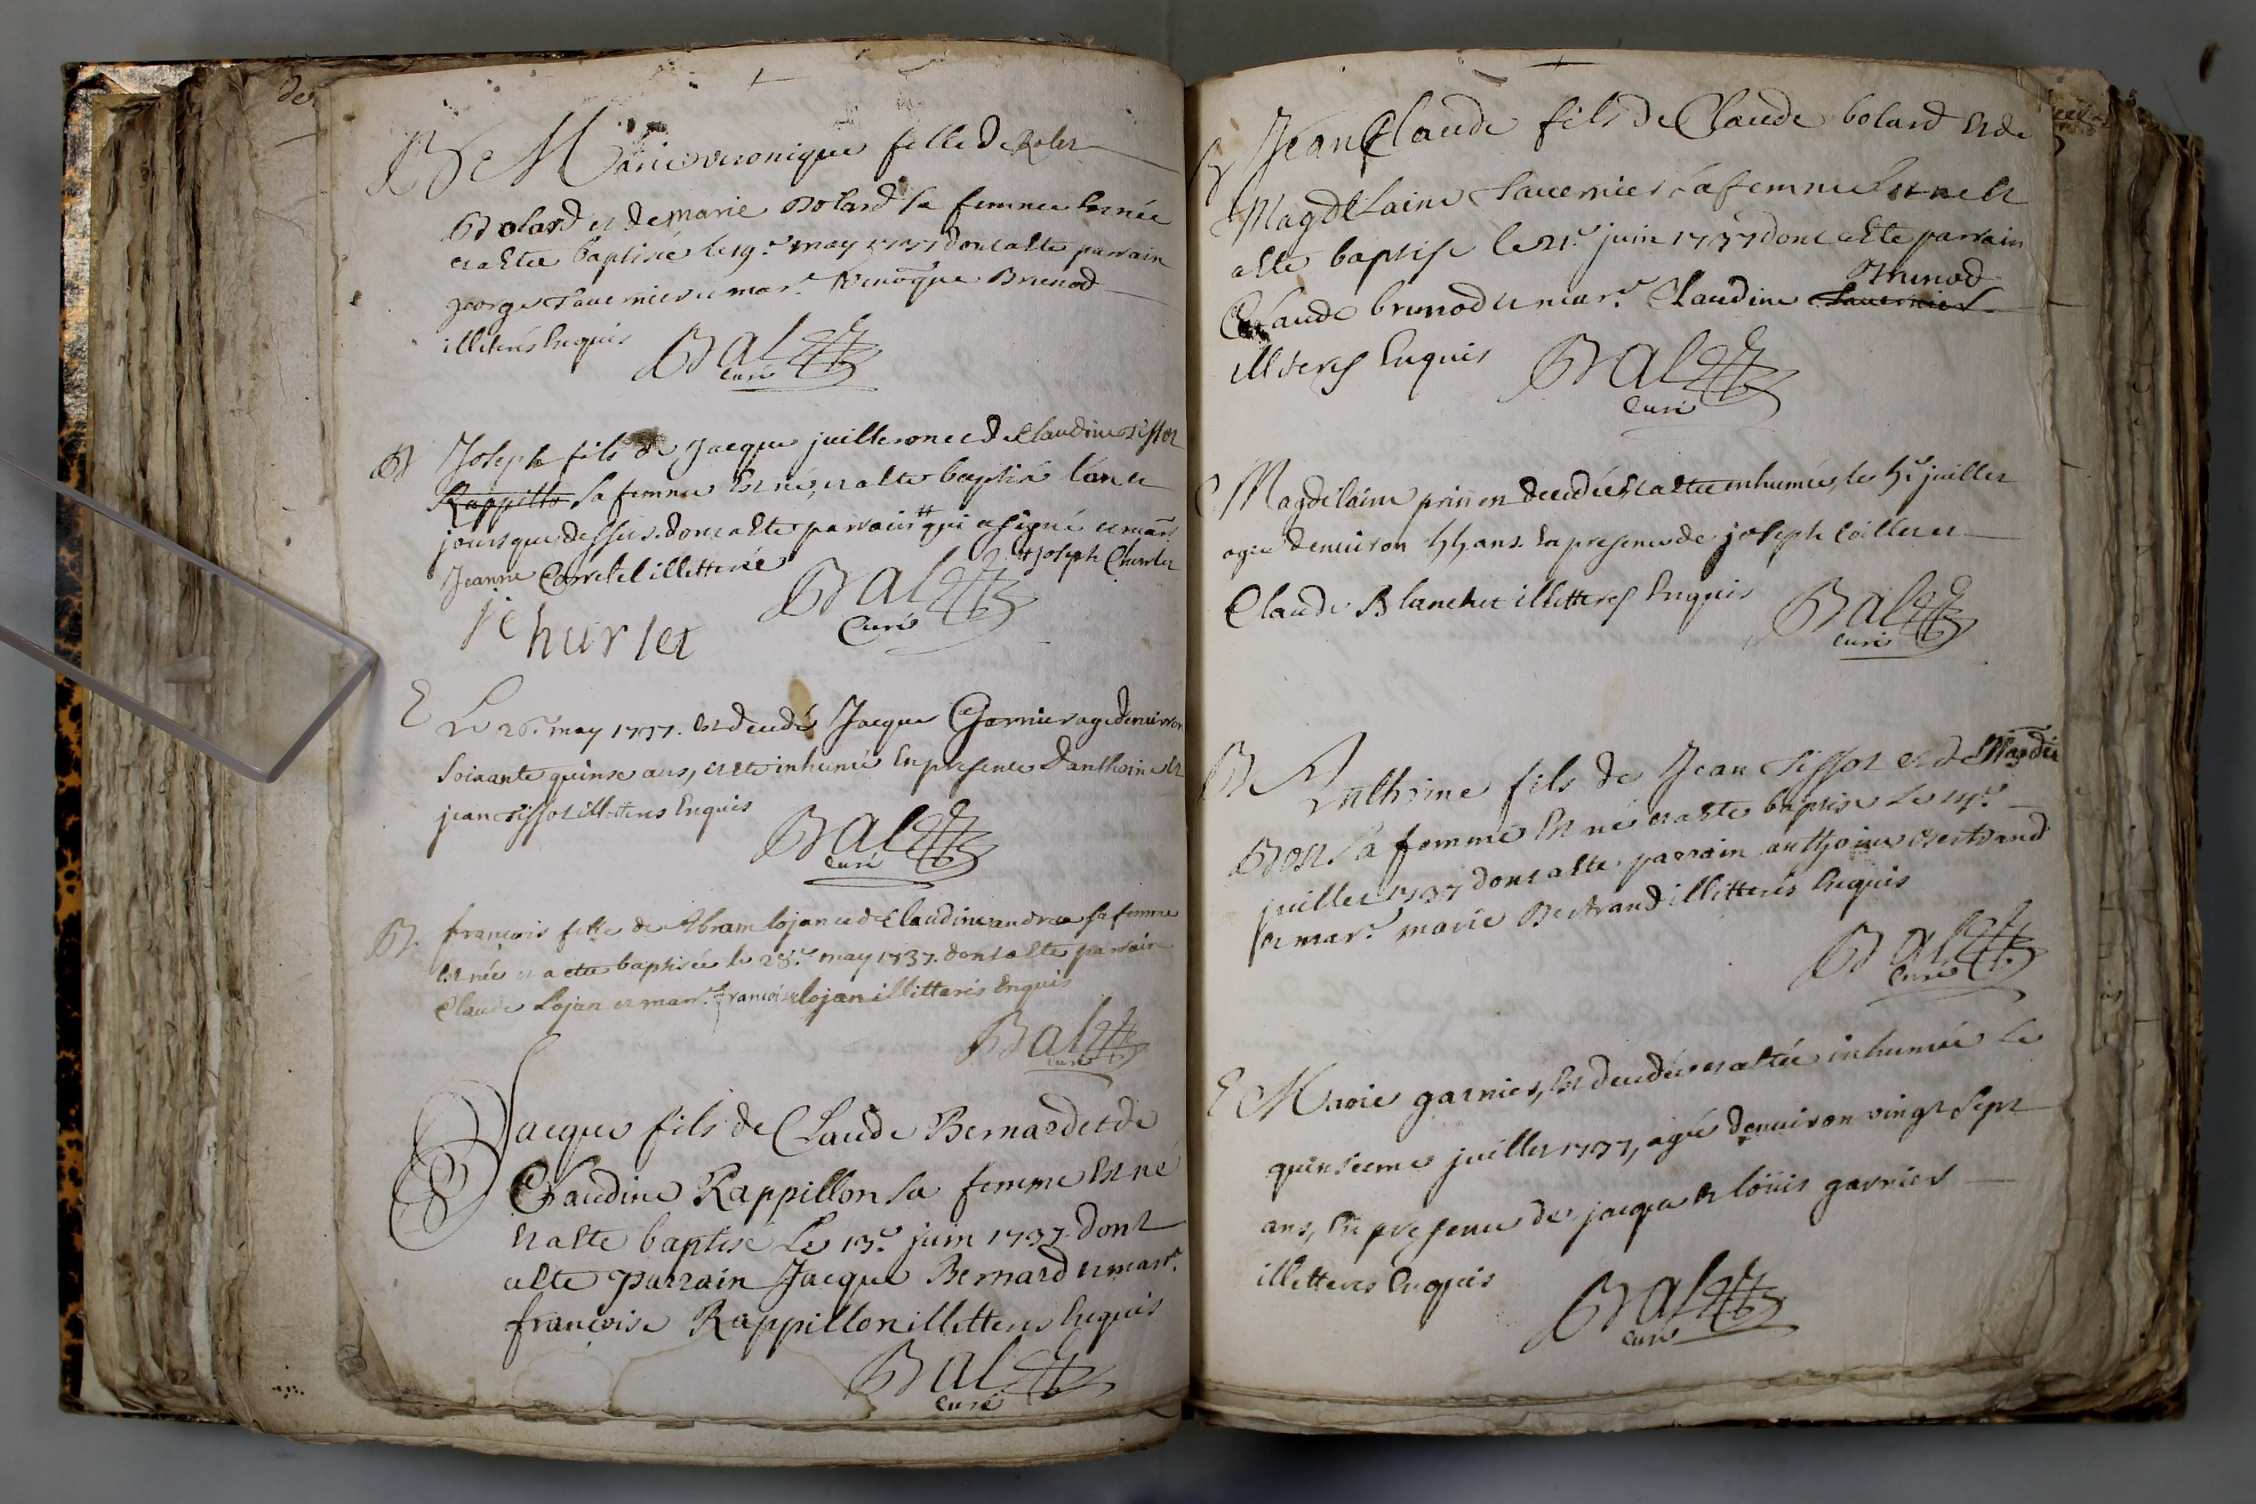 B Marie veronique fille de
Bolard et de marie Bolard sa femme est née
et a esté baptisée le 19.e may 1737 dont a esté parrain
george Tauernier et mar.e Brunod
illiterés Enquis
Balet
Curé
B Joseph fils de Jacque juilleron et de Claudine Tissot
Rappillo sa femme est né, et a esté baptisé l'an et
jours que dessus. dont a esté parrain # qui a signé et marr.
# joseph Churlet
Jeanne illetterée
j churlet
Balet
Curé
E Le 26.e may 1737. est decedé Jacque Garnier agé denuiron
Soixante quinse ans, et esté inhumé En presence d'anthoine et
jean Tissot illetterés Enquis
Balet
Curé
B françoise fille de Abram lojan et de Claudine andrea sa femme
est née et a etée baptisée le 28.e may 1737. dont a esté parrain
Claude Lojan et marr.e françoise lojan illitterés Enquis
Balet
Curé
B Jacque fils de Claude Bernard et de
Claudine Rappillon sa femme Est né
Et a esté baptisé Le 13.e juin 1737 dont
a esté parrain Jacque Bernard et marr.e
françoise Rappillon illetterés Enquis
Balet
Curé
B Jean Claude fils de Claude bolard et de
Magdelaine Tauernier sa femme Est né et
a esté baptisé le 21.e juin 1737 dont a esté parrain
Brunod
Claude brunod et marr.e Claudine Tauernier
illiterés Enquis
Balet
Curé
E Magdelaine decedée, et a etée enhumée, le 5.e juillet
agée denuiron 55 ans. En presence de joseph et
Claude Blanchet illitterés Enquis
Balet
Curé
B Anthoine fils de Jean Tissot et de Magde
Bost sa femme Est né et a esté baptisé Le 14.e
juillet 1737 dont a esté parrain anthoine Bertrand
et mar.e marie Bertrand illitterés Enquis
Balet
Curé
E Marie garnier, Est decedée et a estée inhumée Le
quinsieme juillet 1737, agée denuiron vingt Sept
ans, En presence de jacque et loüis garnier
illetterés Enquis
Balet
Curé